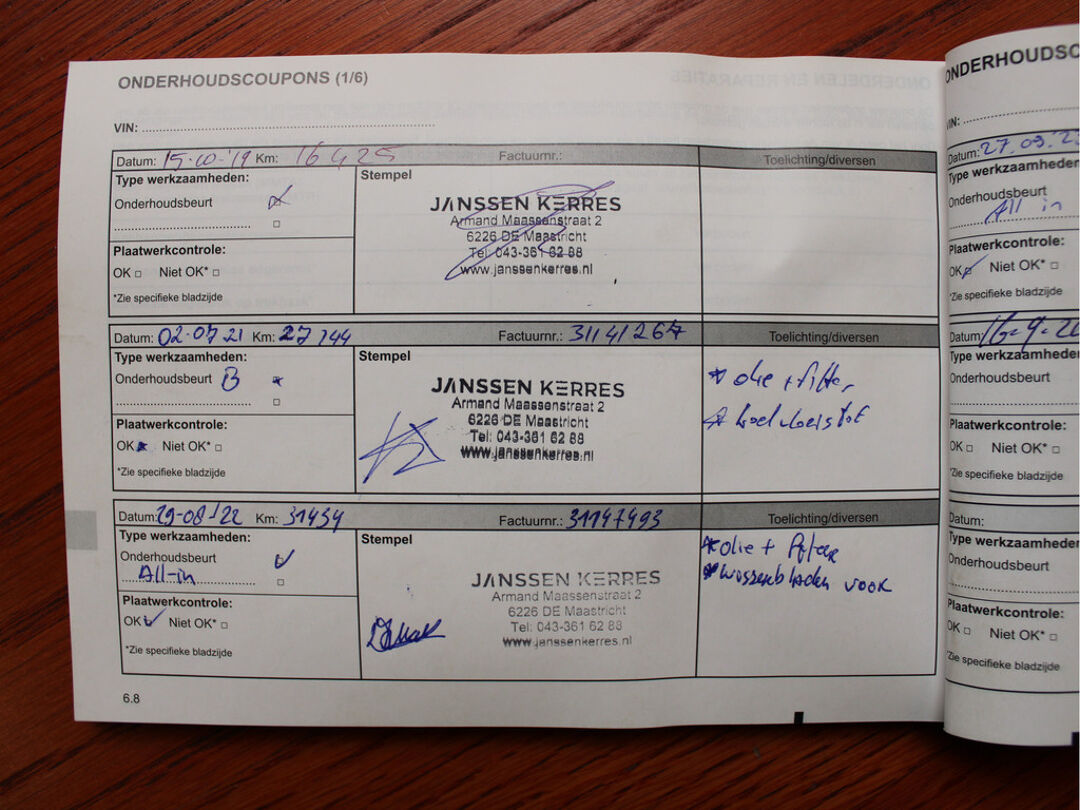 ONDERHOUDSCOUPONS (1/6)
VIN:
Datum: 15-10-'19 Km: 16425 Factuurnr.: Toelichting/diversen
Type werkzaamheden: Stempel
Onderhoudsbeurt
JANSSEN KERRES
Armand Maassenstraat 2
6226 DE Maastricht
Tel: 043-361 62 88
www.janssenkerres.nl
Plaatwerkcontrole:
OK □ Niet OK* □
*Zie specifieke bladzijde
Datum: 02-07 21 Km: 27144 Factuurnr.: 31141267 Toelichting/diversen
Type werkzaamheden: Stempel
Onderhoudsbeurt B
JANSSEN KERRES
Armand Maassenstraat 2
6226 DE Maastricht
Tel: 043-361 62 88
www.janssenkerres.nl
* olie + filter
* koelvloeistof
Plaatwerkcontrole:
OK Niet OK* □
*Zie specifieke bladzijde
Datum: 29-08-'22 Km: 31434 Factuurnr.: 31147493 Toelichting/diversen
Type werkzaamheden: Stempel
Onderhoudsbeurt
All-in
JANSSEN KERRES
Armand Maassenstraat 2
6226 DE Maastricht
Tel: 043-361 62 88
www.janssenkerres.nl
* olie + filter
* wissenbladen voor
Plaatwerkcontrole:
OK Niet OK* □
*Zie specifieke bladzijde
6.8
ONDERHOUDSC
VIN:
Datum: 27.09.'23
Type werkzaamheden
Onderhoudsbeurt
All in
Plaatwerkcontrole:
OK Niet OK* □
*Zie specifieke bladzijde
Datum: 16-9-20
Type werkzaamheden
Onderhoudsbeurt
Plaatwerkcontrole:
OK □ Niet OK* □
*Zie specifieke bladzijde
Datum:
Type werkzaamheden
Onderhoudsbeurt
Plaatwerkcontrole:
OK □ Niet OK* □
*Zie specifieke bladzijde